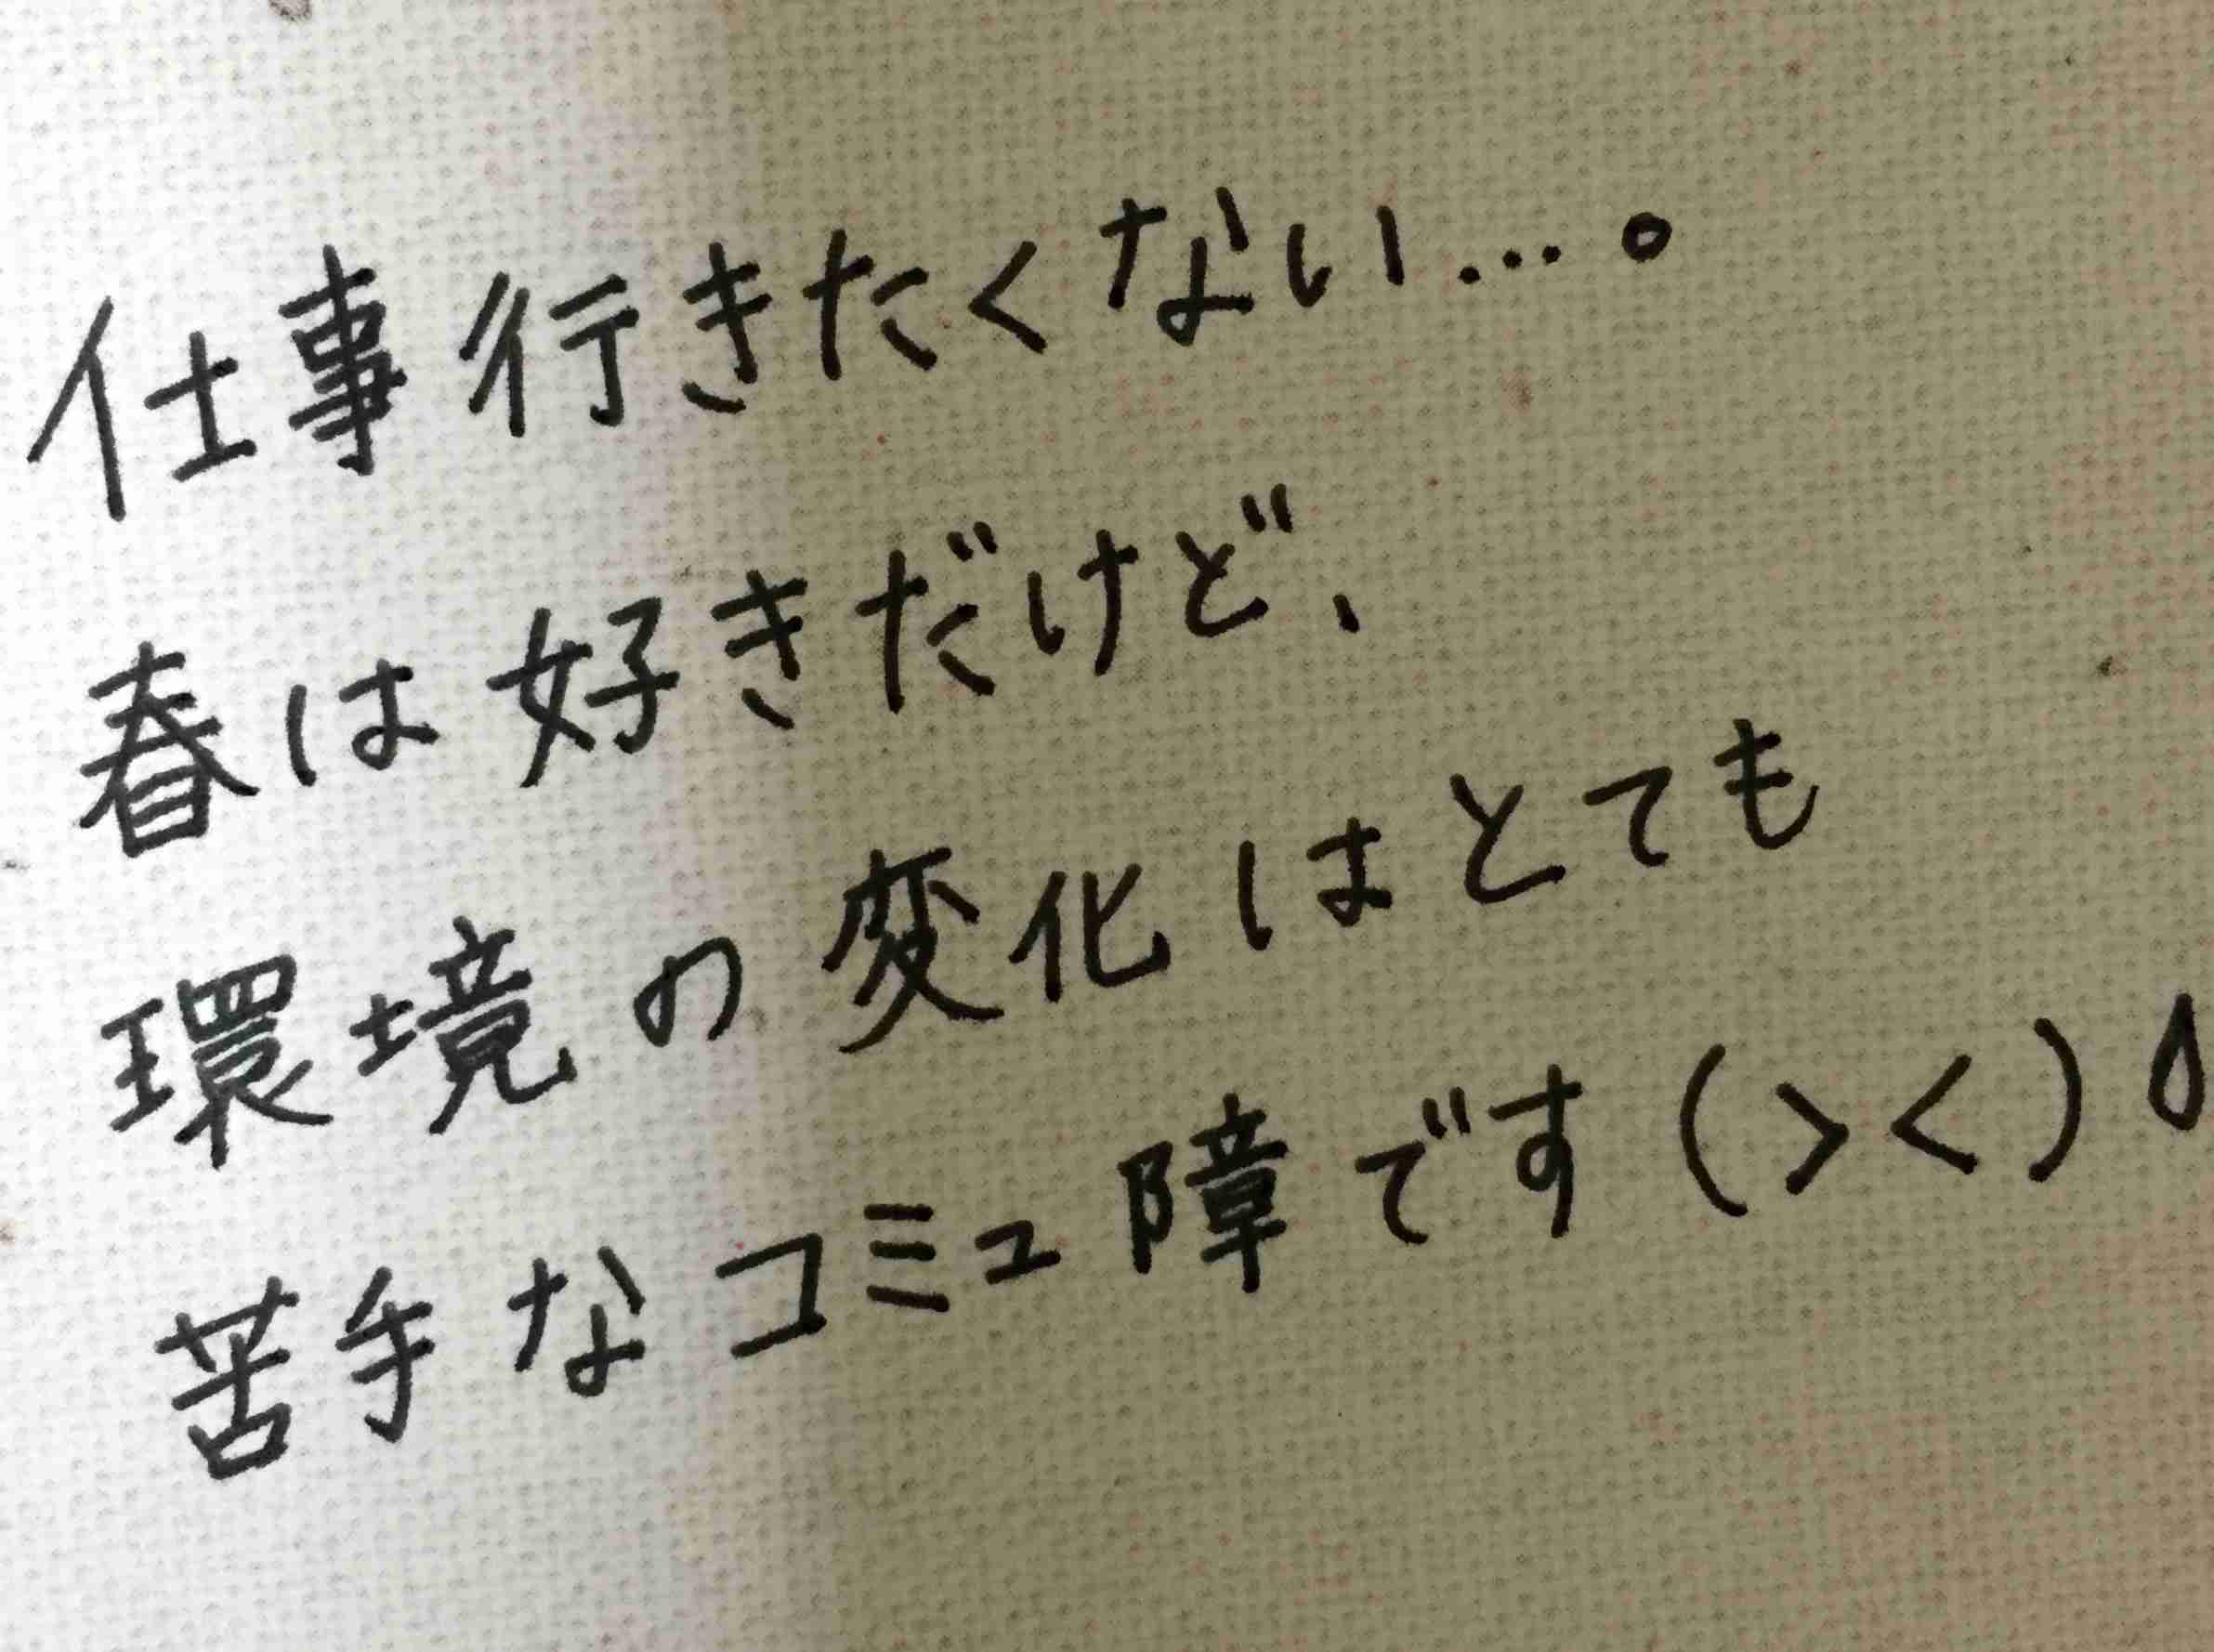 仕事行きたくない…。
春は好きだけど、
環境の変化はとても
苦手なコミュ障です(><)💧